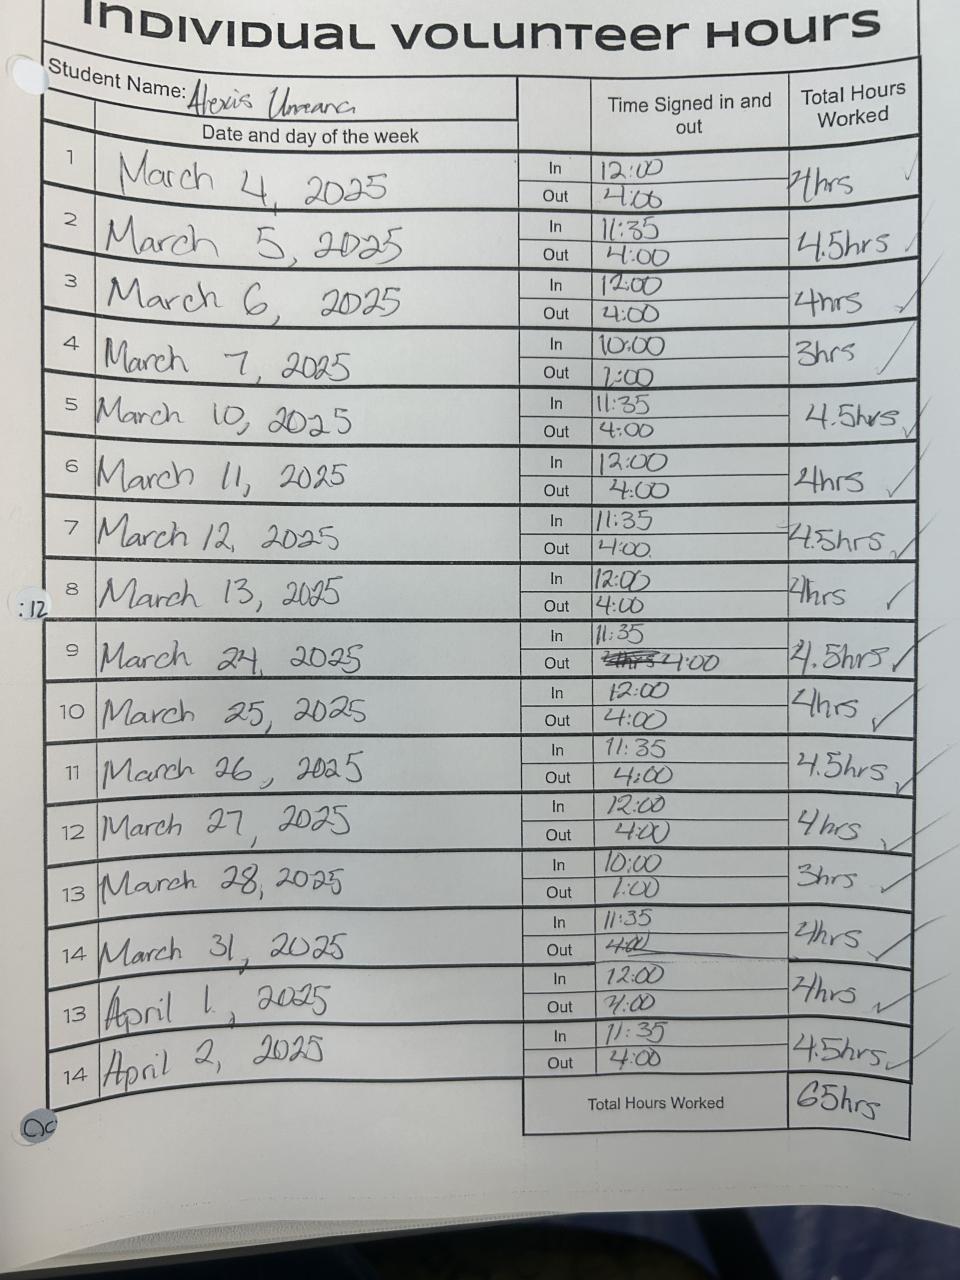 INDIVIDUAL VOLUNTEER HOURS
Student Name: Alexis
Time Signed in and out
Total Hours Worked
Date and day of the week
1 March 4, 2025 In 12:00 4hrs
Out 4:00
2 March 5, 2025 In 11:35 4.5hrs
Out 4:00
3 March 6, 2025 In 12:00 4hrs
Out 4:00
4 March 7, 2025 In 10:00 3hrs
Out 1:00
5 March 10, 2025 In 11:35 4.5hrs
Out 4:00
6 March 11, 2025 In 12:00 4hrs
Out 4:00
7 March 12, 2025 In 11:35 4.5hrs
Out 4:00
8 March 13, 2025 In 12:00 4hrs
Out 4:00
:12
9 March 24, 2025 In 11:35 4.5hrs
Out 4:00
10 March 25, 2025 In 12:00 4hrs
Out 4:00
11 March 26, 2025 In 11:35 4.5hrs
Out 4:00
12 March 27, 2025 In 12:00 4hrs
Out 4:00
13 March 28, 2025 In 10:00 3hrs
Out 1:00
14 March 31, 2025 In 11:35 4hrs
Out 4:00
13 April 1, 2025 In 12:00 4hrs
Out 4:00
14 April 2, 2025 In 11:35 4.5hrs
Out 4:00
Total Hours Worked 65hrs